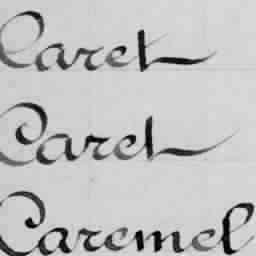 Caret
Caret
Caremel